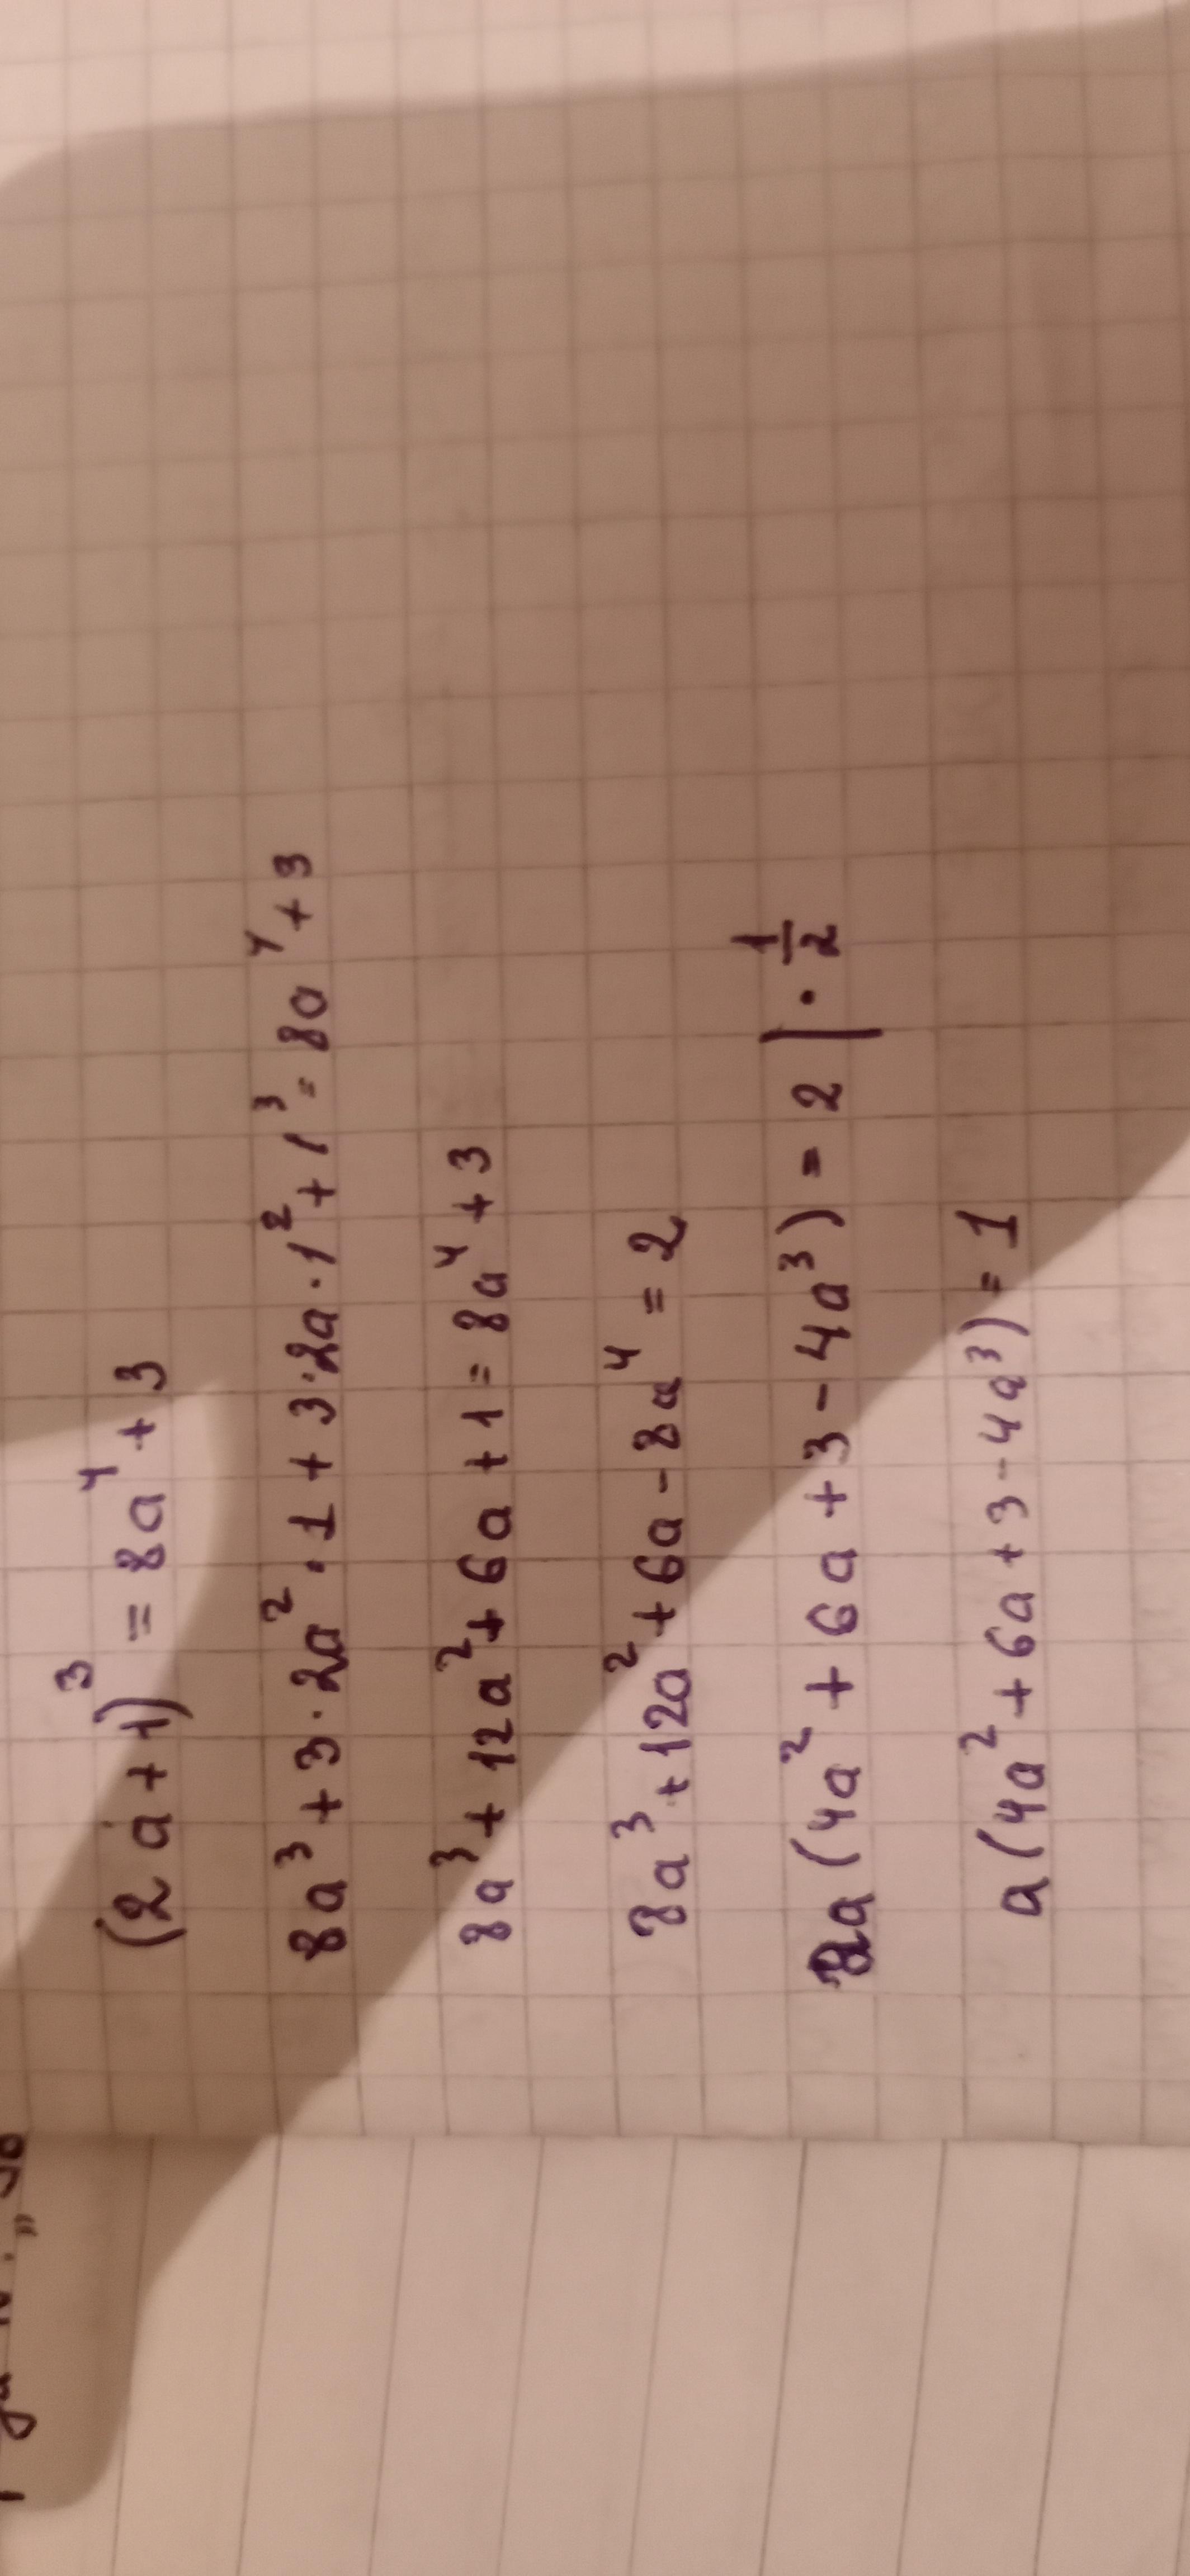 (2a+1)³ = 8a⁴+3
8a³+3·2a²·1+3·2a·1²+1³=8a⁴+3
8a³+12a²+6a+1=8a⁴+3
8a³+12a²+6a-8a⁴=2
2a(4a²+6a+3-4a³)=2 | · 1/2
a(4a²+6a+3-4a³)=1